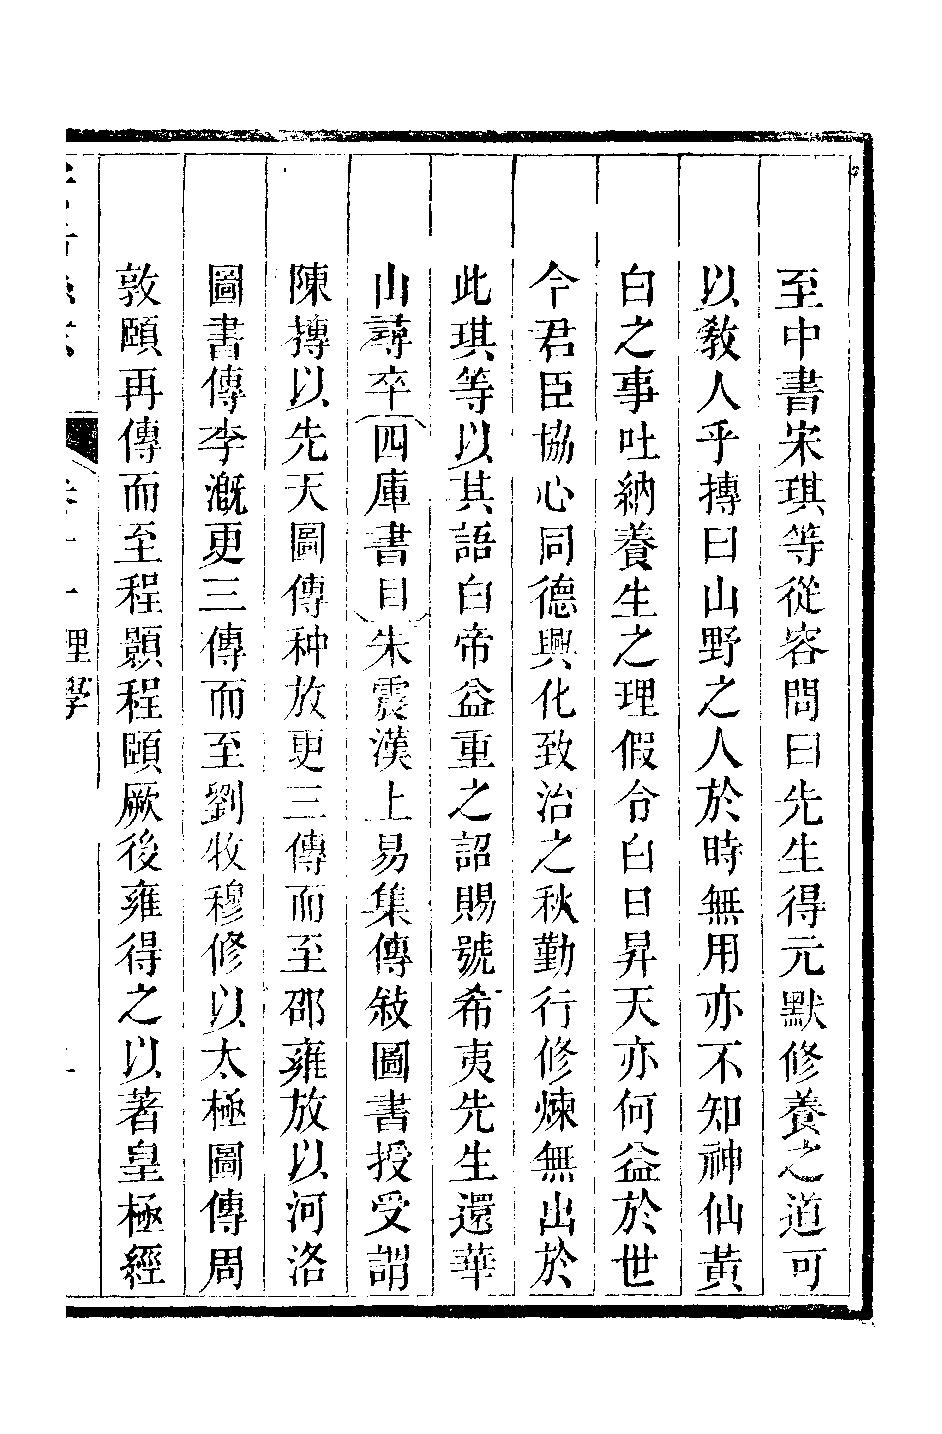 至中書宋琪等從容問曰先生得元默修養之道可
以敎人乎摶曰山野之人於時無用亦不知神仙黃
白之事吐納養生之理假令白日昇天亦何益於世
今君臣協心同德興化致治之秋勤行修煉無出於
此琪等以其語白帝益重之詔賜號希夷先生還華
山尋卒（四庫書目）朱震漢上易集傳敍圖書授受謂
陳摶以先天圖傳种放更三傳而至邵雍放以河洛
圖書傳李漑更三傳而至劉牧穆修以太極圖傳周
敦頤再傳而至程顥程頤厥後雍得之以著皇極經
理學